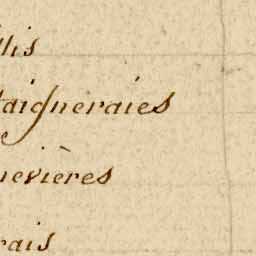 llis
taigneraies
nevières
rais